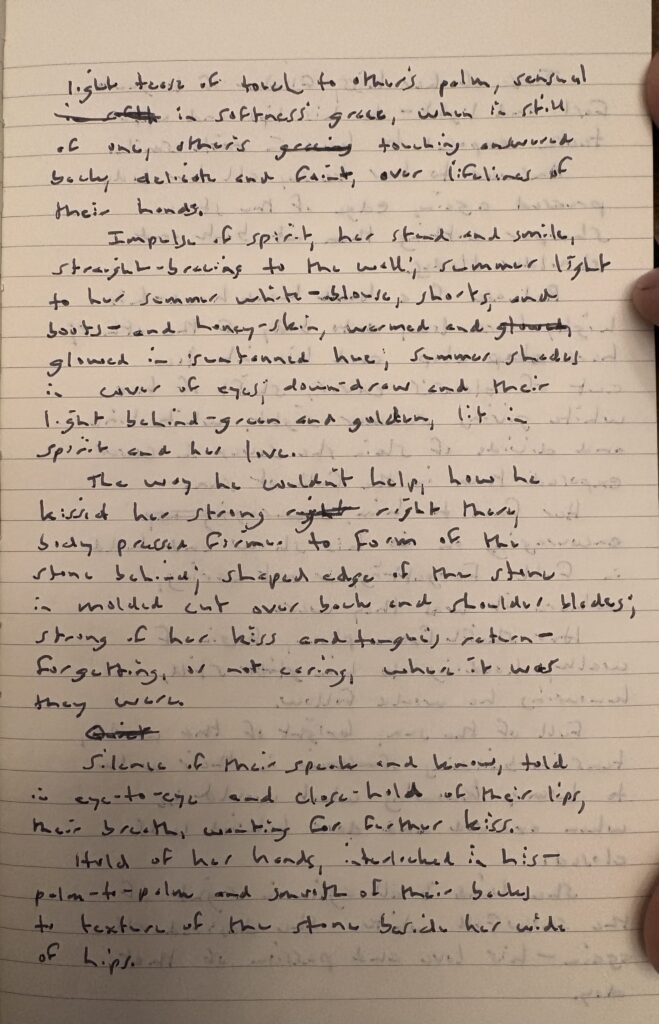 light tease of touch to other's palm, sensual
in softness grace, when in still
of one, other's touching answered
back, delicate and faint, over lifelines of
their hands.
Impulse of spirit, her stand and smile,
straight-bracing to the wall; summer light
to her summer white-blouse, shorts, and
boots- and honey-skin, warmed and glowed,
glowed in suntanned hue; summer shades
in cover of eyes; down-draw and their
light behind-green and golden, lit in
spirit and her love.
The way he couldn't help, how he
kissed her strong right right there,
body pressed firmer to form of the
stone behind; shaped edge of the stone
in molded cut over back and shoulder blades;
strong of her kiss and tongue's return-
forgetting, or not caring, where it was
they were.
Quiet
Silence of their speak and know, told
in eye-to-eye and close-hold of their lips,
their breath, wanting for further kiss.
Hold of her hands, interlocked in his-
palm-to-palm and of their backs
to texture of the stone beside her wide
of hips.